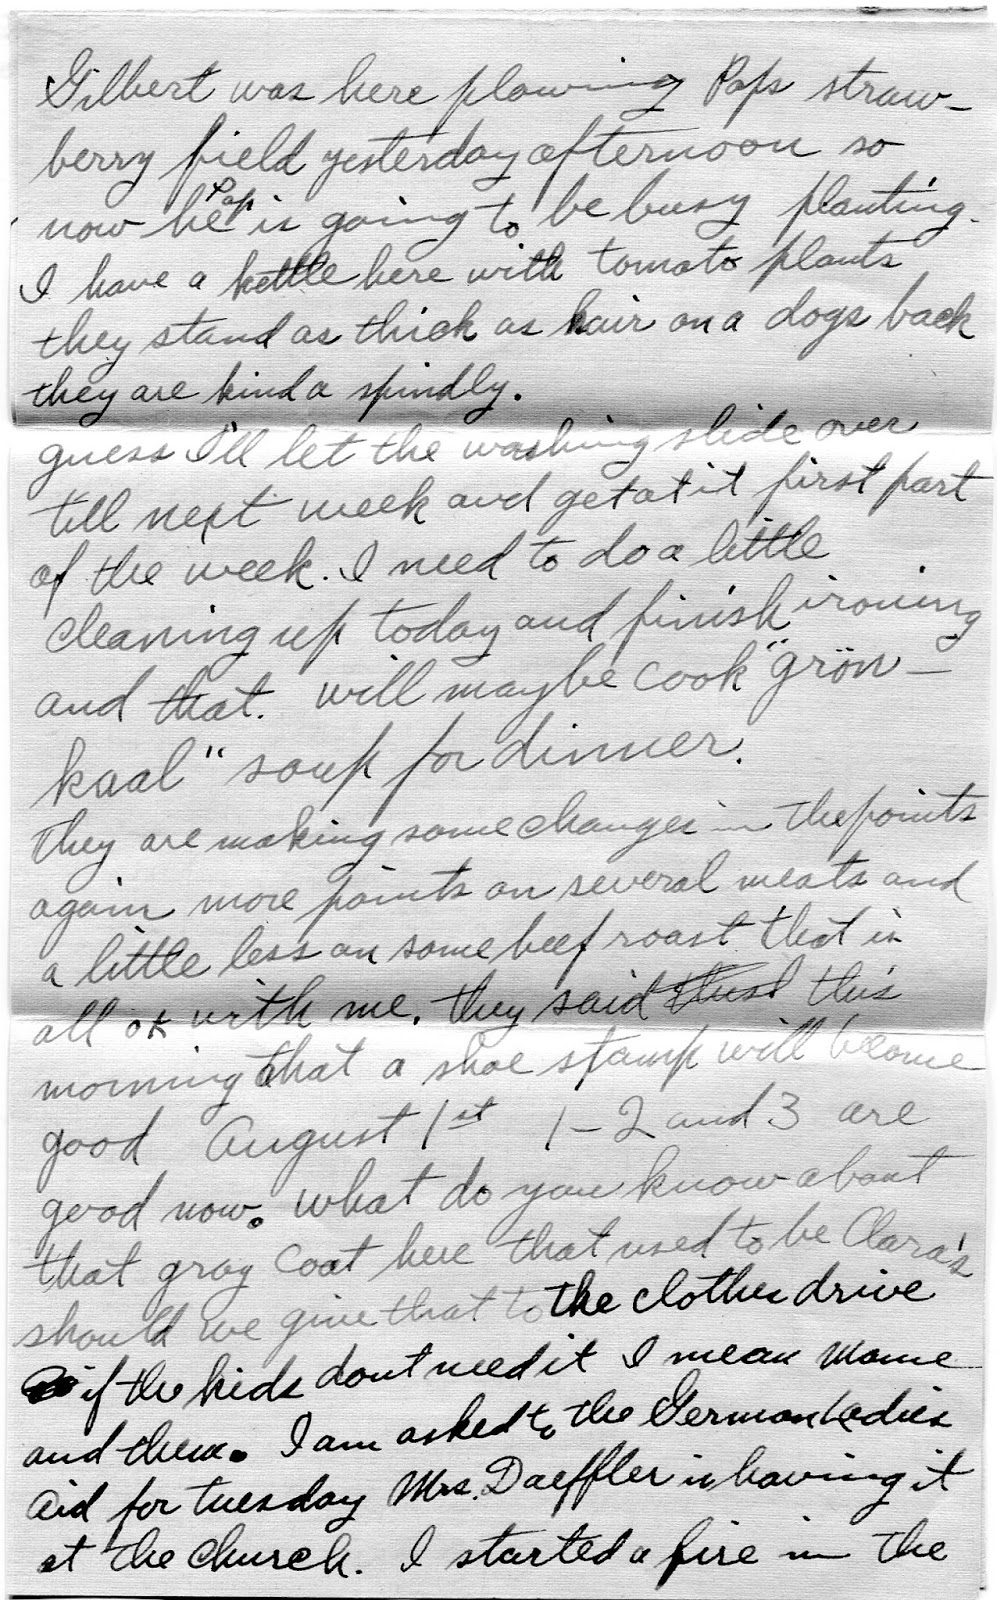 Gilbert was here plowing Paps straw-
berry field yesterday afternoon so
now he Pap is going to be busy planting.
I have a kettle here with tomato plants
they stand as thick as hair on a dogs back
they are kinda spindly.
guess I'll let the washing slide over
till next week and get at it first part
of the week. I need to do a little
cleaning up today and finish ironing
and that. will maybe cook "grön-
kaal" soup for dinner.
they are making some changes in the points
again more points on several meats and
a little less on some beef roast that is
all ok with me. they said this
morning that a shoe stamp will become
good August 1st 1-2 and 3 are
good now. what do you know about
that gray coat here that used to be Clara's
should we give that to the clothes drive
if the kids dont need it I mean Mame
and them. I am asked to the German Ladies
Aid for tuesday Mrs. Daeffler is having it
at the church. I started a fire in the